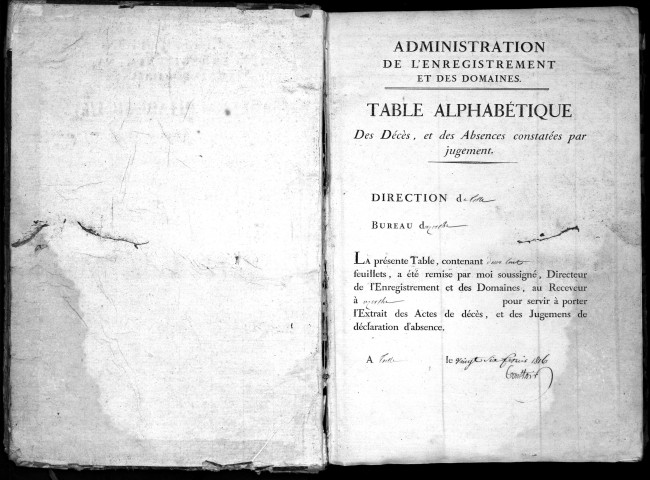 ADMINISTRATION
DE L'ENREGISTREMENT
ET DES DOMAINES.
TABLE ALPHABÉTIQUE
Des Décès, et des Absences constatées par
jugement.
DIRECTION d
BUREAU d
LA présente Table, contenant deux cents
feuillets, a été remise par moi soussigné, Directeur
de l'Enregistrement et des Domaines, au Receveur
à pour servir à porter
l'Extrait des Actes de décès, et des Jugemens de
déclaration d'absence.
A le vingt six 1816